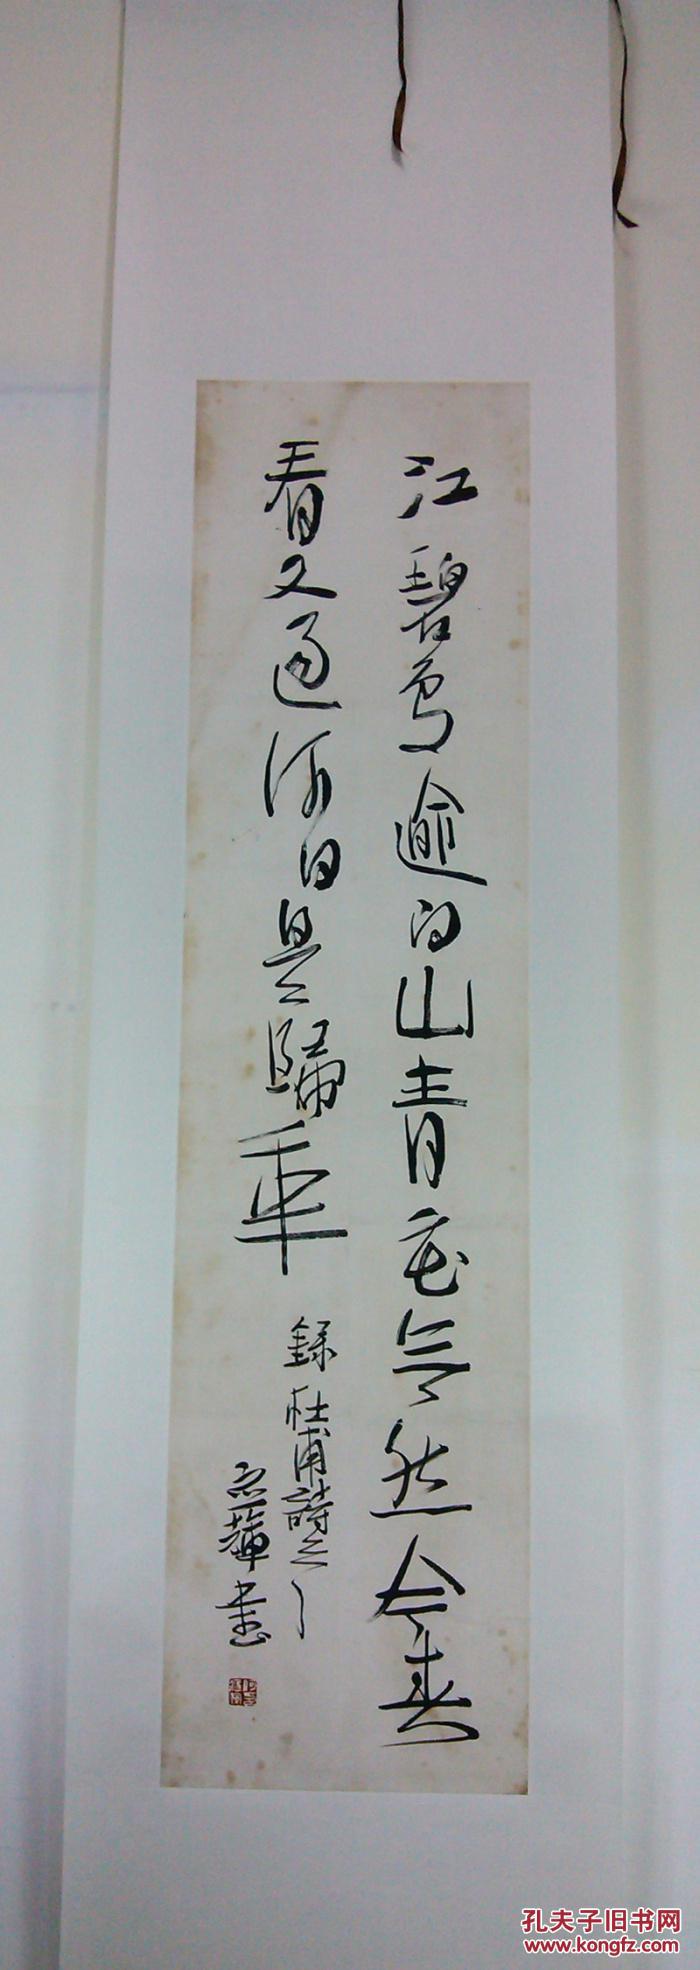 江碧鸟逾白山青花欲然今春
看又過何日是歸年
録杜甫詩之一
書
孔夫子旧书网
www.kongfz.com